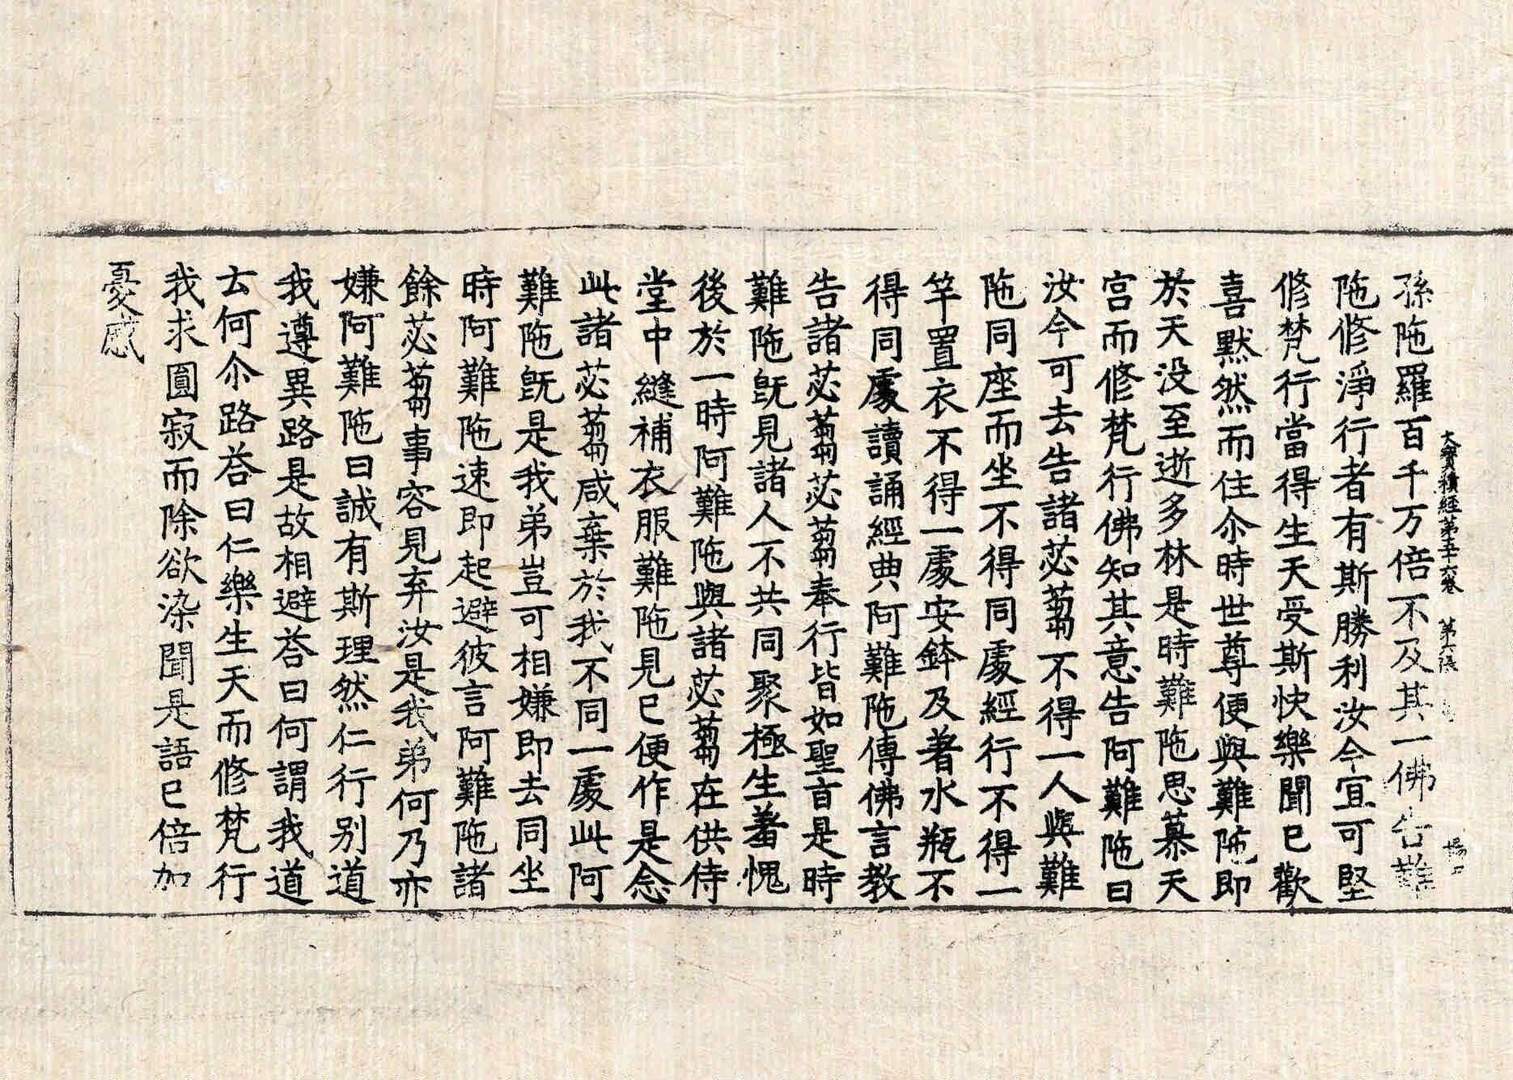 大寶積經第五六卷　第六張
孫陁羅百千万倍不及其一佛告難
陁修淨行者有斯勝利汝今宜可堅
修梵行當得生天受斯快樂聞已歡
喜默然而住尒時世尊便與難陁即
於天没至逝多林是時難陁思慕天
宫而修梵行佛知其意告阿難陁曰
汝今可去告諸苾蒭不得一人與難
陁同座而坐不得同處經行不得一
竿置衣不得一處安鉢及著水瓶不
得同處讀誦經典阿難陁傳佛言教
告諸苾蒭苾蒭奉行皆如聖旨是時
難陁旣見諸人不共同聚極生羞愧
後於一時阿難陁與諸苾蒭在供侍
堂中縫補衣服難陁見已便作是念
此諸苾蒭咸棄於我不同一處此阿
難陁旣是我弟豈可相嫌即去同坐
時阿難陁速即起避彼言阿難陁諸
餘苾蒭事容見弃汝是我弟何乃亦
嫌阿難陁曰誠有斯理然仁行别道
我遵異路是故相避荅曰何謂我道
云何尒路荅曰仁樂生天而修梵行
我求圓寂而除欲染聞是語已倍加
憂慼